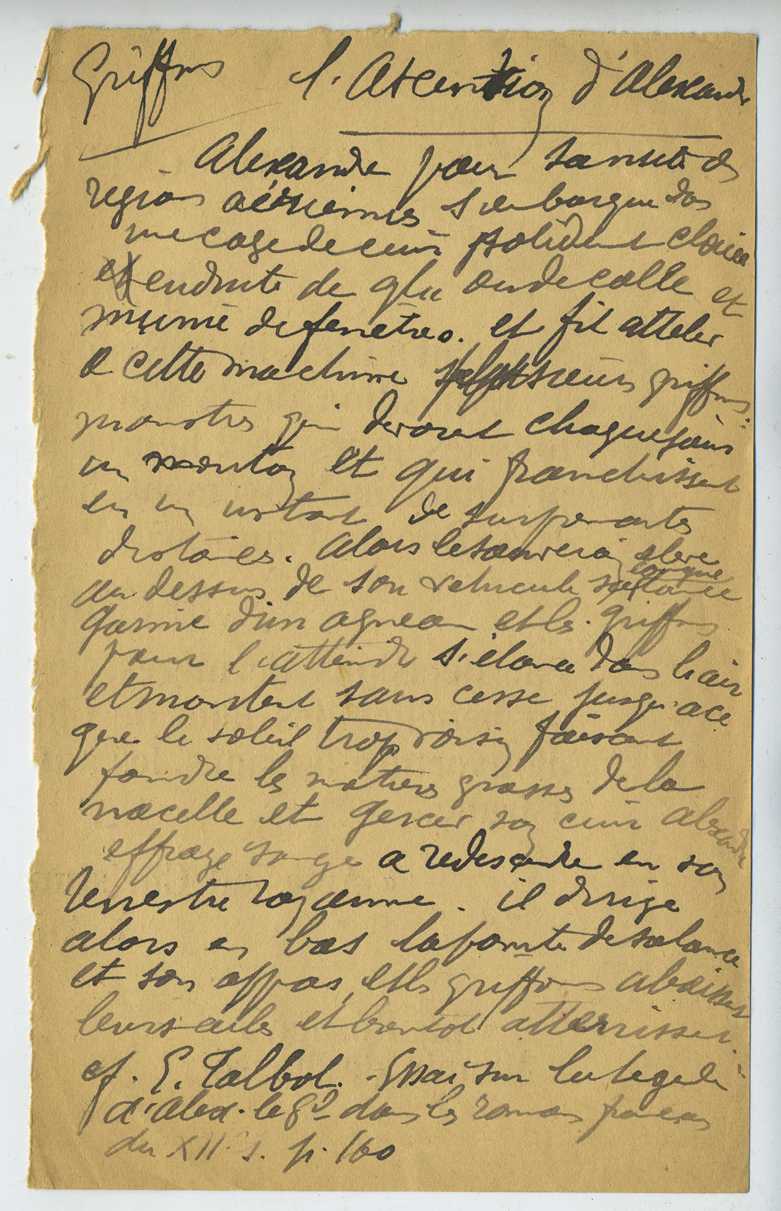 Griffons l'Ascension d'Alexandre
Alexandre pour des
régions aériennes s'embarque dans
une cage de cuir solidement clouée
et enduite de glu ou de colle et
munie de fenêtres. et fit atteler
a cette machine plusieurs griffons
monstres qui devorent chaque jour
un mouton et qui franchissent
en un instant de surprenantes
distances. Alors le souverain eleve
au dessus de son vehicule sa longue lance
garnie d'un agneau et les griffons
pour l'atteindre s'elance dans l'air
et montent sans cesse jusqu'a ce
que le soleil trop voisin faisant
fondre les matieres grasses de la
nacelle et gercer son cuir alexandre
effraye songe a redescendre en son
terrestre royaume. il dirige
alors en bas la pointe de sa lance
et son appas, et les griffons abaissent
leurs ailes et bientot atterrissent.
cf. E. Talbot. Essai sur la legende
d'Alex. le Gd dans les romans francais
du XII s. p. 160